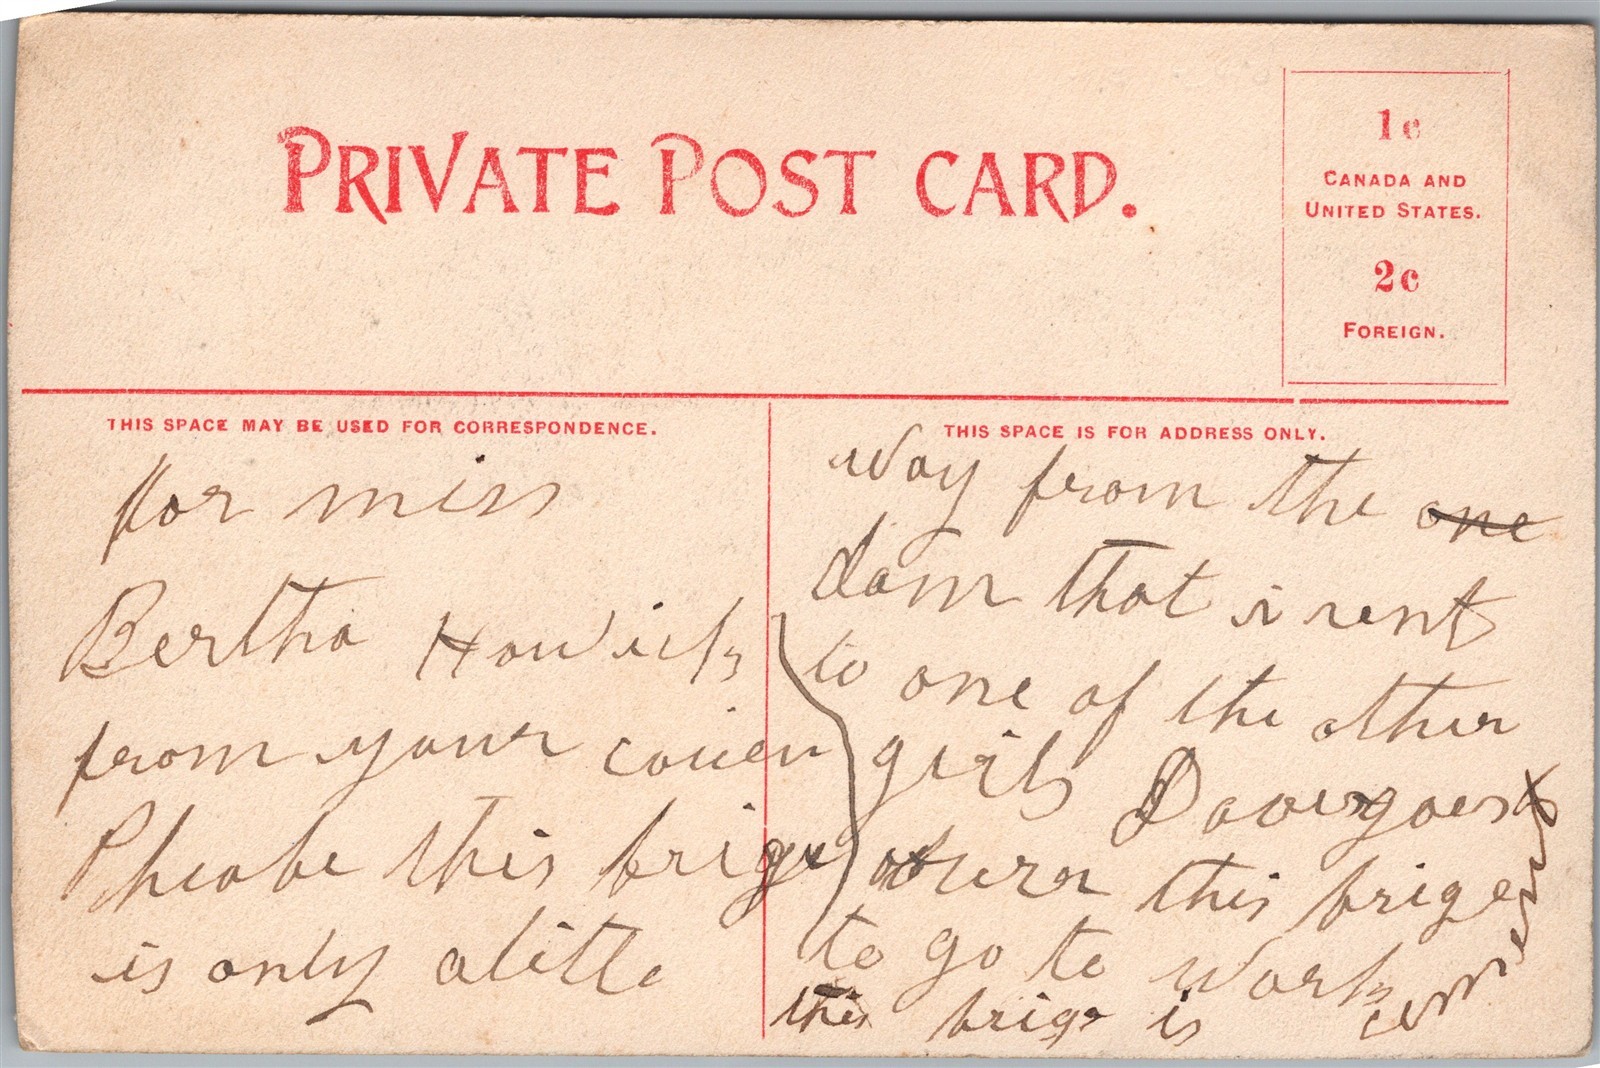 PRIVATE POST CARD.
1c
CANADA AND
UNITED STATES.
2c
FOREIGN.
THIS SPACE MAY BE USED FOR CORRESPONDENCE.
for miss
Bertha
from your cousen
Pheobe this brige
is only alitle
THIS SPACE IS FOR ADDRESS ONLY.
way from the one
dam that i rent
to one of the other
girls
this brige
to go to work
this brige is
cement